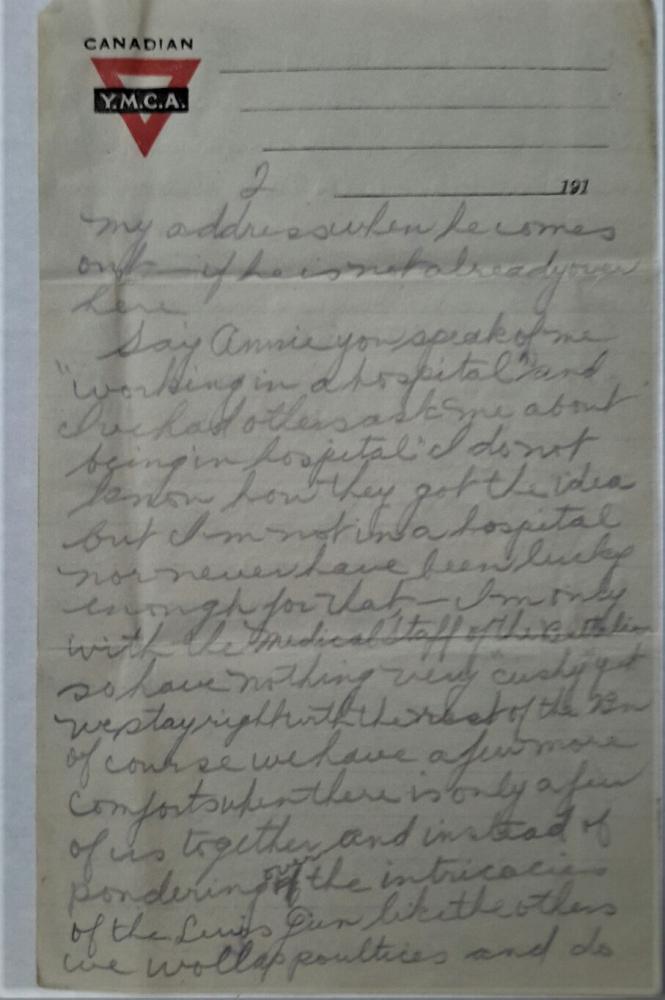 CANADIAN
Y.M.C.A.
2
191
my address when he comes
out — if he is not already over
here
Say Annie you speak of me
"working in a hospital" and
I've had others ask me about
being in hospital" I do not
know how they got the idea
but I'm not in a hospital
nor never have been lucky
enough for that — I'm only
with the medical staff of the Battalion
so have nothing very "cushy" yet
we stay right with the rest of the Bn
of course we have a few more
comforts when there is only a few
of us together and instead of
pondering over the intricacies
of the Lewis Gun like the others
we poultices and do